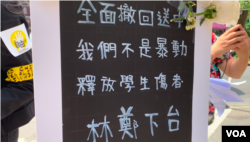 全面撤回送中
我們不是暴動
釋放學生傷者
林鄭下台
VOA